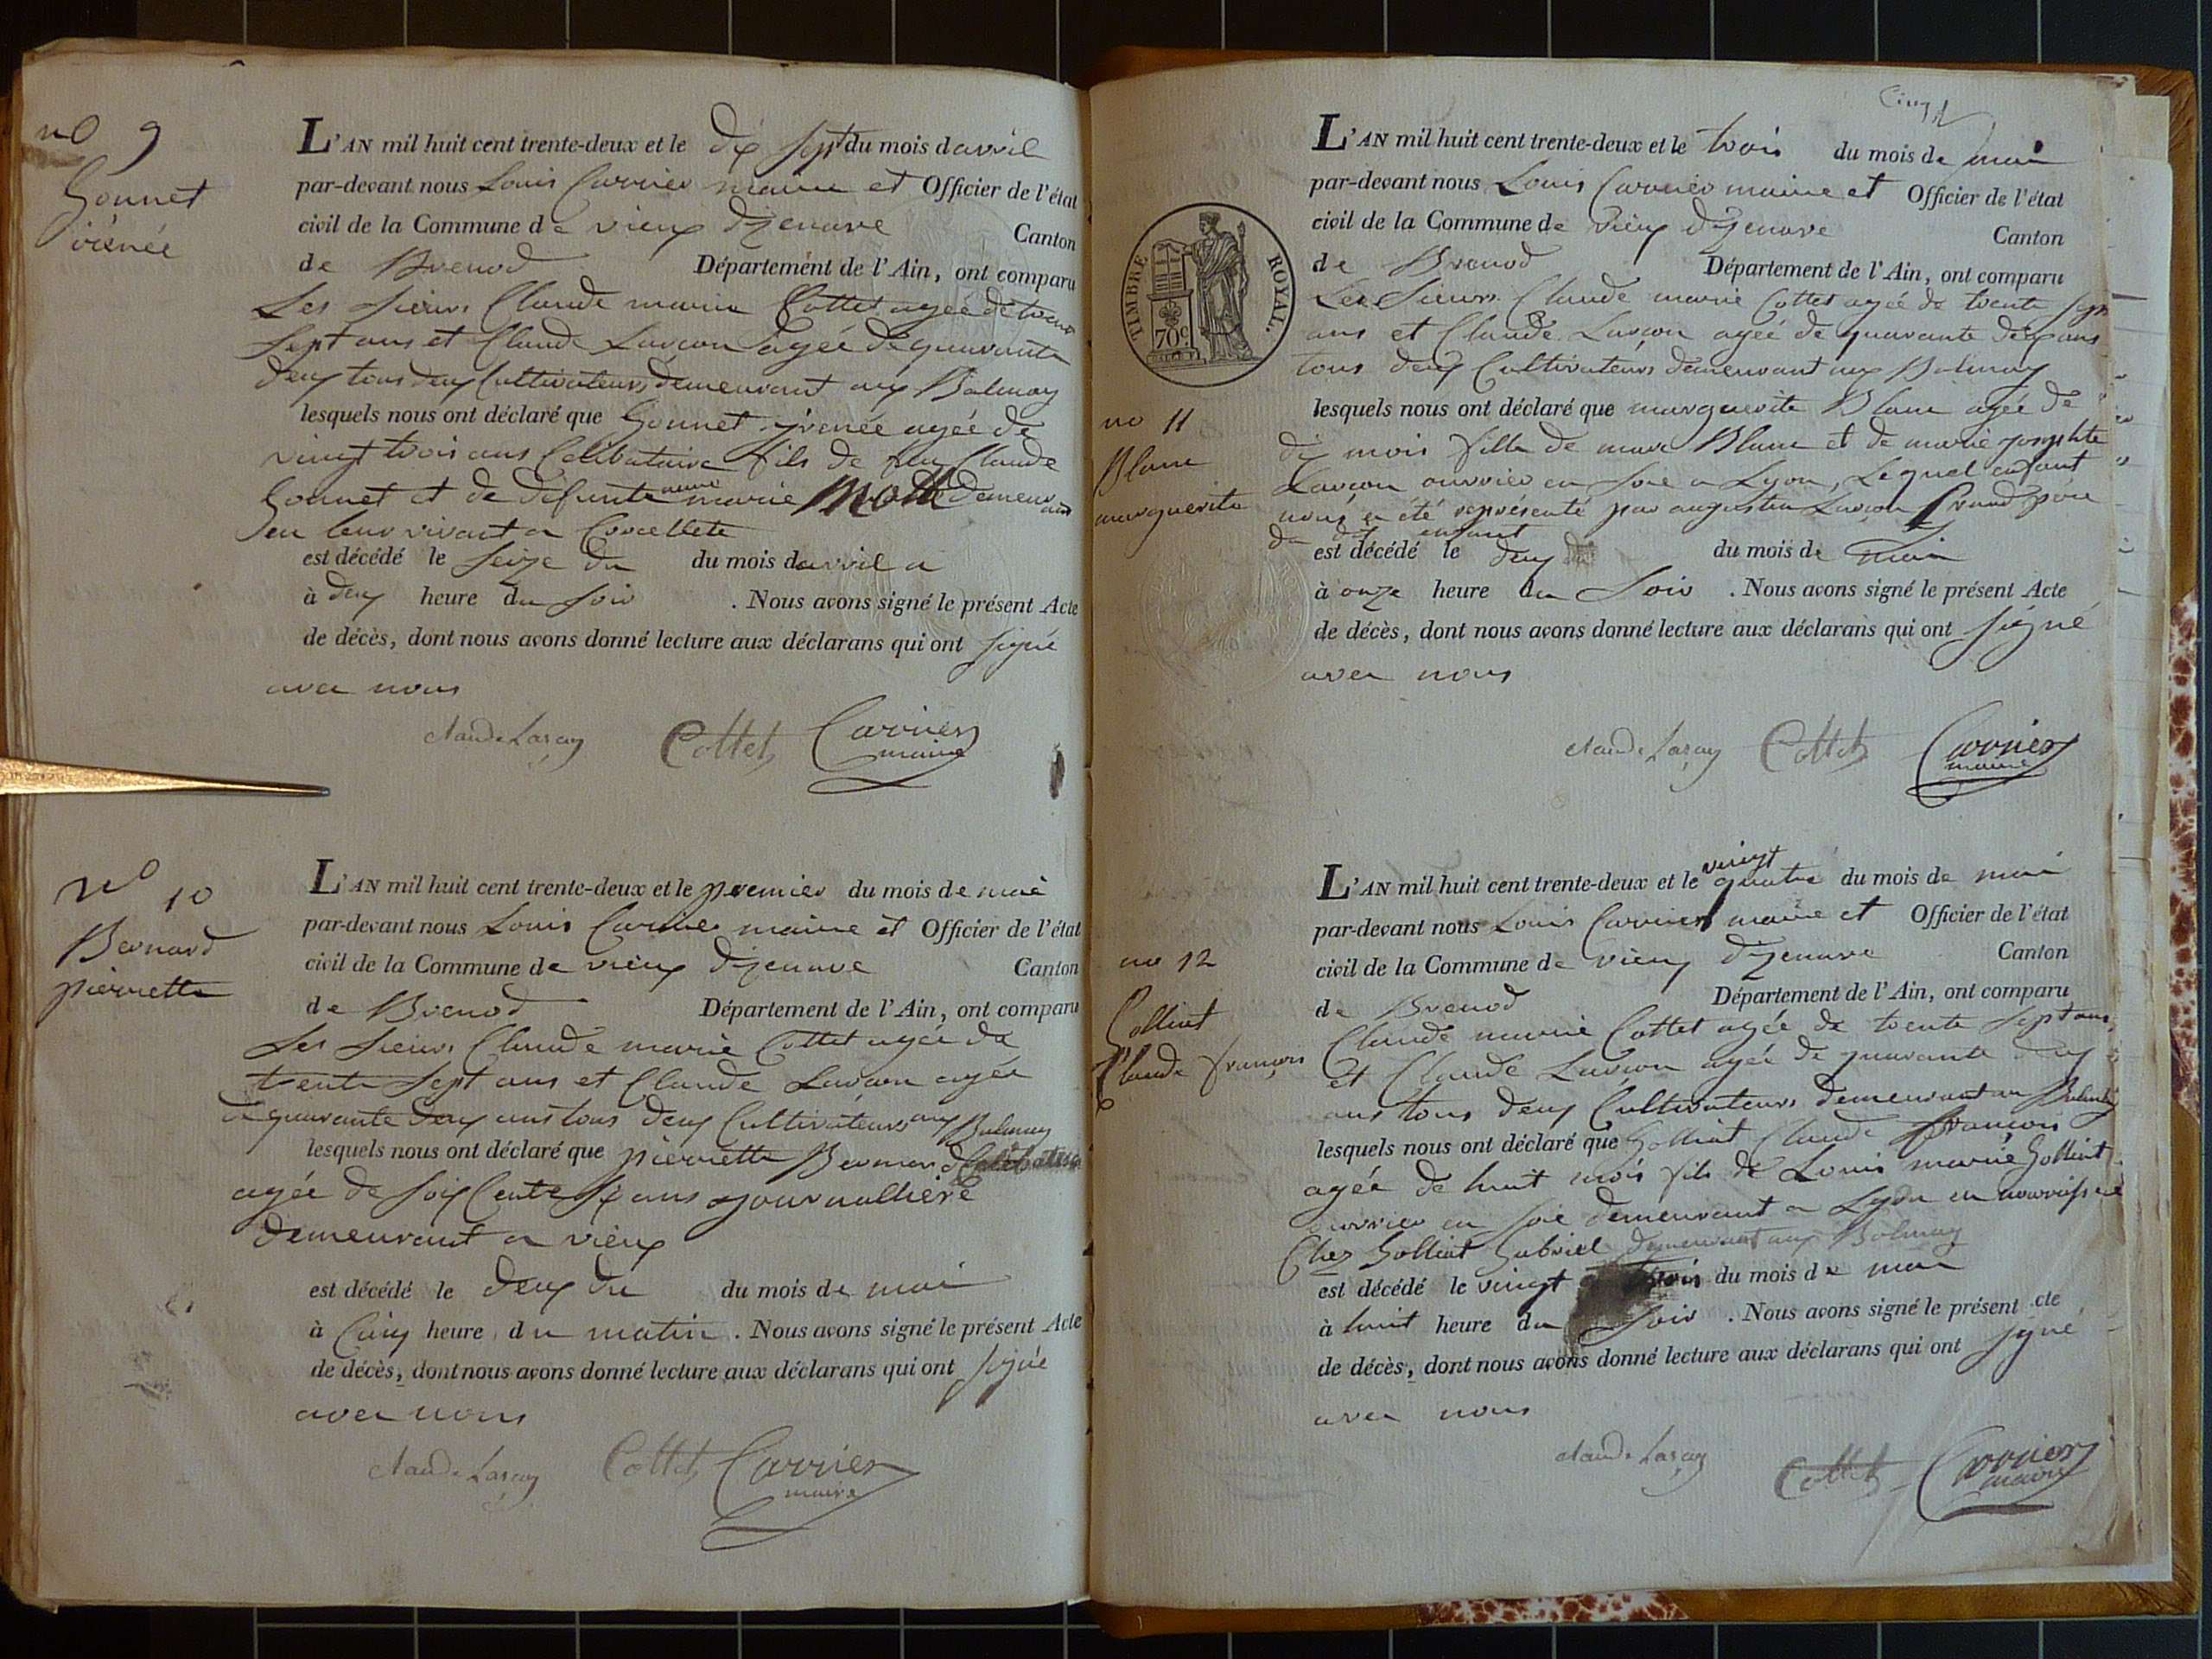 no 9
Gonnet
irénée
L'AN mil huit cent trente-deux et le dix sept du mois d avril
par-devant nous Louis Carrier maire et Officier de l'état
civil de la Commune de vieux dizenave Canton
de Brenod Département de l'Ain, ont comparu
Les sieurs Claude marie Cottet agée de trente
sept ans et Claude Lavçon agée de quarante
deux tous deux Cultivateurs demeurant aux Balmay
lesquels nous ont déclaré que Gonnet irénée agée de
vingt trois ans Celibataire fils de feu Claude
Gonnet et de defunte anne marie Motte demeurant
en leur vivant a Corcellete
est décédé le seize du du mois d avril a
à deux heure du soir . Nous avons signé le présent Acte
de décès, dont nous avons donné lecture aux déclarans qui ont signé
avec nous
Claude Lavçon Cottet Carrier
maire
no 10
Bernard
pierrette
L'AN mil huit cent trente-deux et le premier du mois de mai
par-devant nous Louis Carrier maire et Officier de l'état
civil de la Commune de vieux dizenave Canton
de Brenod Département de l'Ain, ont comparu
Les sieurs Claude marie Cottet agée de
trente sept ans et Claude Lavçon agée
de quarante deux ans tous deux Cultivateurs aux Balmay
lesquels nous ont déclaré que pierrette Bernard Celibataire
agée de soixante ans journalliere
demeurant a vieux
est décédé le deux du du mois de mai
à Cinq heure du matin . Nous avons signé le présent Acte
de décès, dont nous avons donné lecture aux déclarans qui ont signé
avec nous
Claude Lavçon Cottet Carrier
maire
Cinq
TIMBRE ROYAL.
70c
no 11
Blanc
marguerite
L'AN mil huit cent trente-deux et le trois du mois de mai
par-devant nous Louis Carrier maire et Officier de l'état
civil de la Commune de vieux dizenave Canton
de Brenod Département de l'Ain, ont comparu
Les sieurs Claude marie Cottet agée de trente sept
ans et Claude Lavçon agée de quarante deux ans
tous deux Cultivateurs demeurant aux Balmay
lesquels nous ont déclaré que marguerite Blanc agée de
dix mois fille de marc Blanc et de marie josephte
Lavçon ouvrier en soie a Lyon, Lequel enfant
nous a été représenté par augustin Lavçon Grand père
du dit enfant
est décédé le deux du mois de mai
à onze heure du soir . Nous avons signé le présent Acte
de décès, dont nous avons donné lecture aux déclarans qui ont signé
avec nous
Claude Lavçon Cottet Carrier
maire
no 12
Golliat
Claude françois
L'AN mil huit cent trente-deux et le vingt quatre du mois de mai
par-devant nous Louis Carrier maire et Officier de l'état
civil de la Commune de vieux dizenave Canton
de Brenod Département de l'Ain, ont comparu
Claude marie Cottet agée de trente sept ans,
et Claude Lavçon agée de quarante deux
ans tous deux Cultivateurs demeurant au Balmay
lesquels nous ont déclaré que Golliat Claude françois
agée de huit mois fils de Louis marie Golliat
ouvrier en soie demeurant a Lyon en nourrisse
Chez Golliat Gabriel demeurant aux Balmay
est décédé le vingt trois du mois de mai
à huit heure du soir . Nous avons signé le présent cte
de décès, dont nous avons donné lecture aux déclarans qui ont signé
avec nous
Claude Lavçon Cottet Carrier
maire